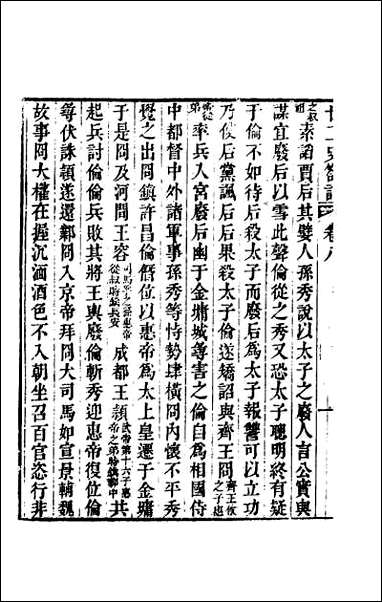 廿二史劄記 卷八 一
之叔祖素諂賈后其嬖人孫秀說以太子之廢人言公實與
謀宜廢后以雪此聲倫從之秀又恐太子聰明終有疑
于倫不如待后殺太子而廢后為太子報讐可以立功
乃使后黨諷后后果殺太子倫遂矯詔與齊王冏齊王攸之子惠
帝從弟率兵入宮廢后幽于金墉城尋害之倫自為相國侍
中都督中外諸軍事孫秀等恃勢肆橫冏內懷不平秀
覺之出冏鎮許昌倫僭位以惠帝為太上皇遷于金墉
于是冏及河間王容司馬孚之孫惠帝從叔時鎮長安成都王穎武帝第十六子惠帝之弟時鎮鄴中共
起兵討倫倫兵敗其將王輿廢倫斬秀迎惠帝復位倫
尋伏誅穎遂還鄴冏入京帝拜冏大司馬如宣景輔魏
故事冏大權在握沉湎酒色不入朝坐召百官恣行非